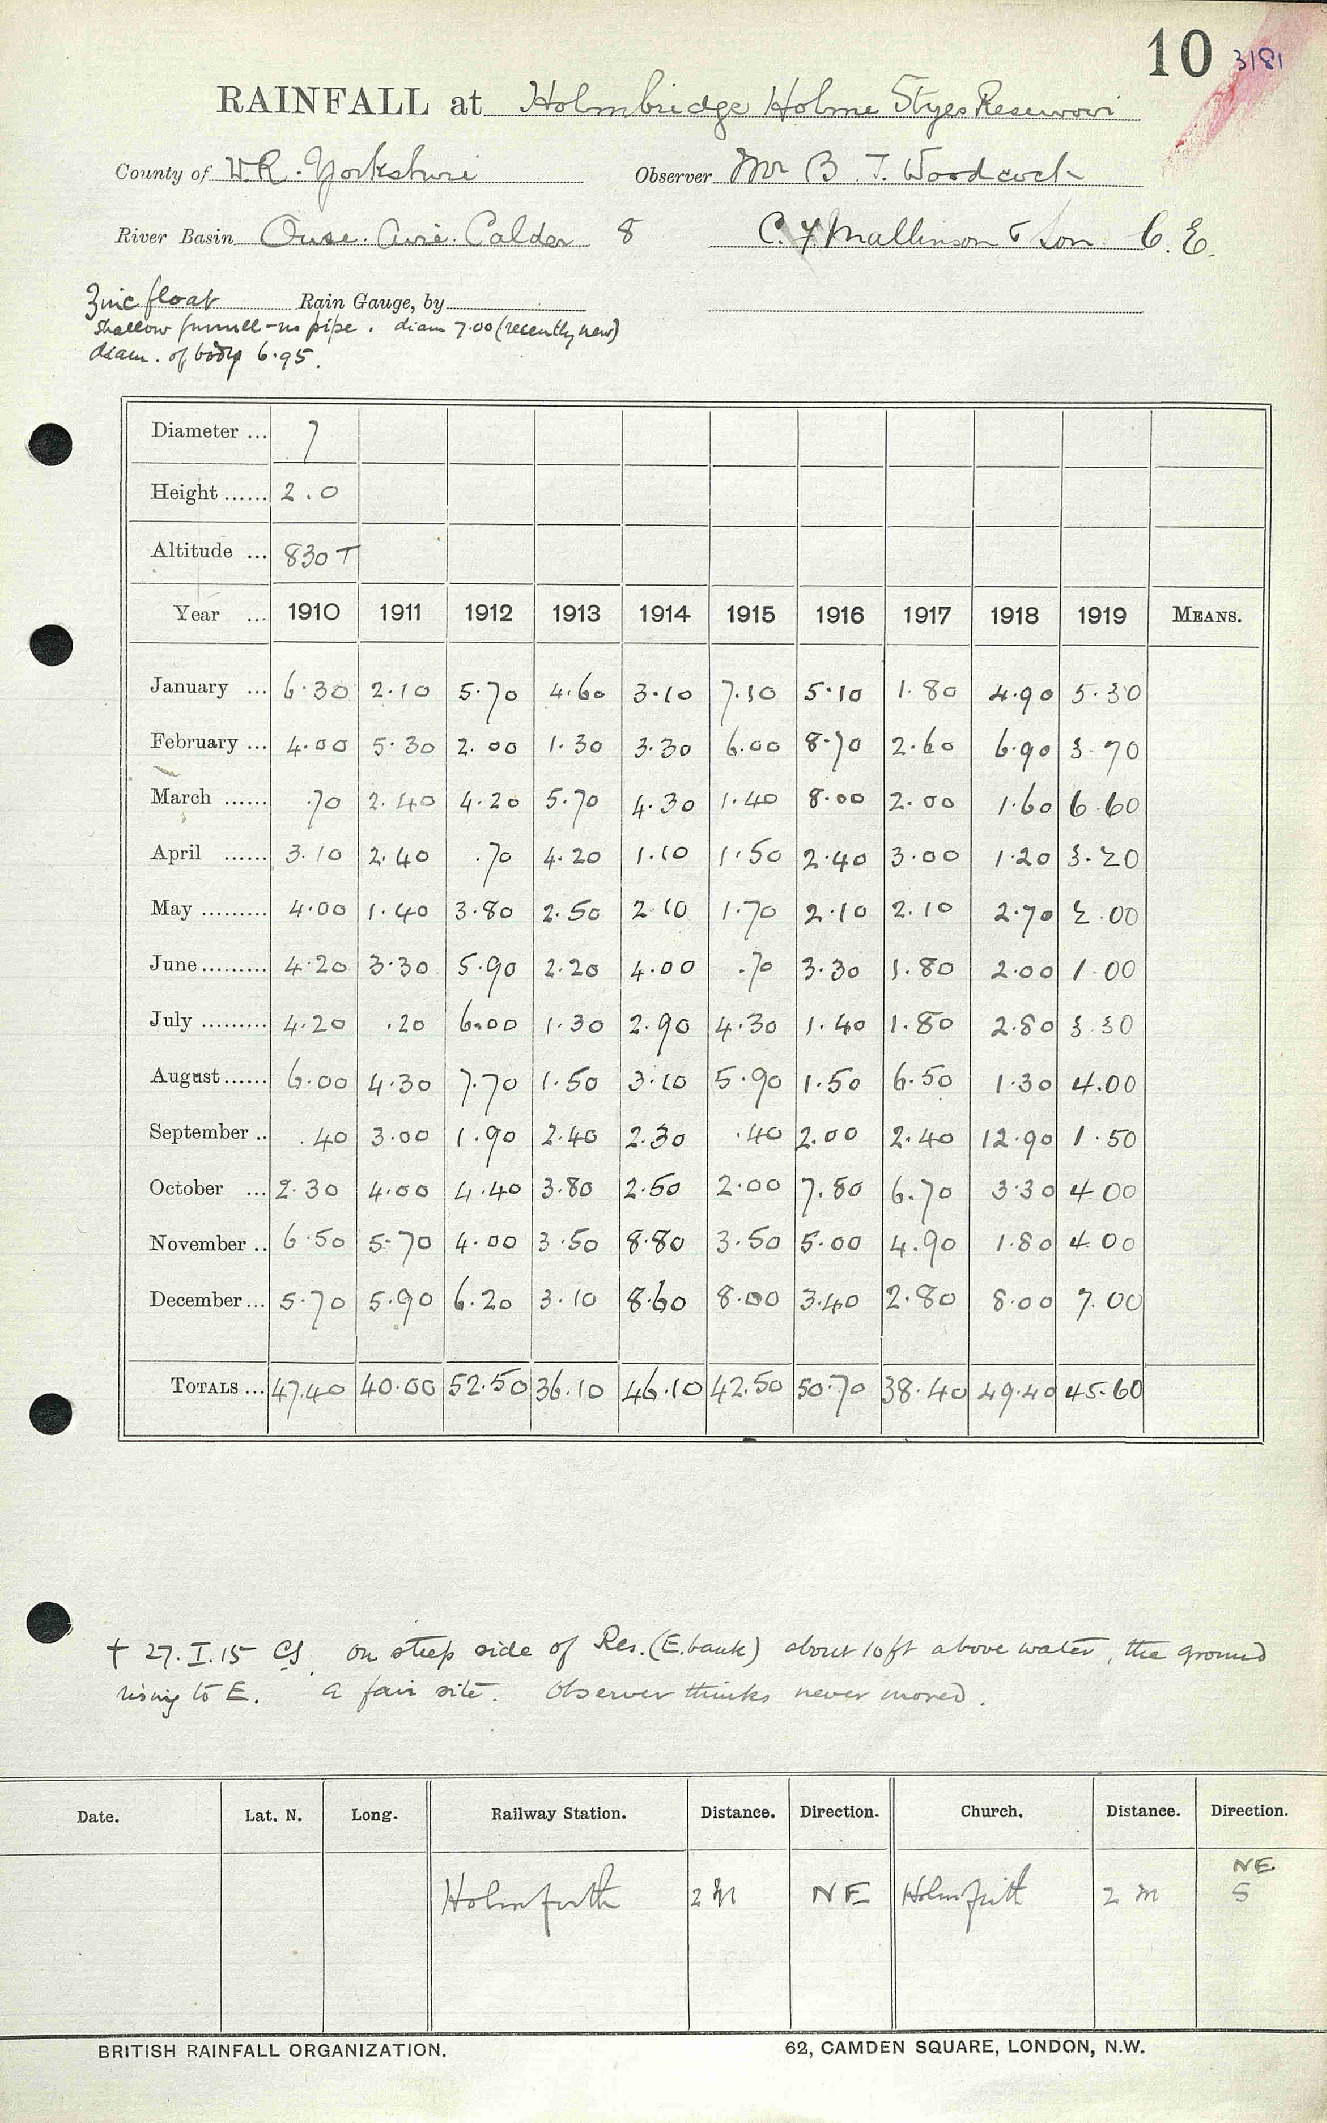 10 3181
RAINFALL at Holmbridge Holme Styes Reservoir
County of W.R. Yorkshire Observer Mr B. T. Woodcock
River Basin Ouse. Aire. Calder 8 C. F. Mallinson & Son C. E.
Zinc float Rain Gauge, by
shallow funnell - no pipe. diam 7.00 (recently new)
diam. of body 6.95.
Diameter ... 7
Height ...... 2.0
Altitude ... 830 T
Year ... 1910 1911 1912 1913 1914 1915 1916 1917 1918 1919 MEANS.
January ... 6.30 2.10 5.70 4.60 3.10 7.10 5.10 1.80 4.90 5.30
February ... 4.00 5.30 2.00 1.30 3.30 6.00 8.70 2.60 6.90 3.70
March ...... .70 2.40 4.20 5.70 4.30 1.40 8.00 2.00 1.60 6.60
April ...... 3.10 2.40 .70 4.20 1.10 1.50 2.40 3.00 1.20 3.20
May ......... 4.00 1.40 3.80 2.50 2.10 1.70 2.10 2.10 2.70 2.00
June ......... 4.20 3.30 5.90 2.20 4.00 .70 3.30 1.80 2.00 1.00
July ......... 4.20 .20 6.00 1.30 2.90 4.30 1.40 1.80 2.80 3.30
August ...... 6.00 4.30 7.70 1.50 3.10 5.90 1.50 6.50 1.30 4.00
September .. .40 3.00 1.90 2.40 2.30 .40 2.00 2.40 12.90 1.50
October ... 2.30 4.00 4.40 3.80 2.50 2.00 7.80 6.70 3.30 4.00
November .. 6.50 5.70 4.00 3.50 8.80 3.50 5.00 4.90 1.80 4.00
December ... 5.70 5.90 6.20 3.10 8.60 8.00 3.40 2.80 8.00 7.00
TOTALS ... 47.40 40.00 52.50 36.10 46.10 42.50 50.70 38.40 49.40 45.60
† 27.I.15 CS. on steep side of Res. (E. bank) about 10 ft above water, the ground
rising to E. A fair site. Observer thinks never moved.
Date. Lat. N. Long. Railway Station. Distance. Direction. Church. Distance. Direction.
NE.
Holmfirth 2 M NE Holmfirth 2 M S
BRITISH RAINFALL ORGANIZATION. 62, CAMDEN SQUARE, LONDON, N.W.